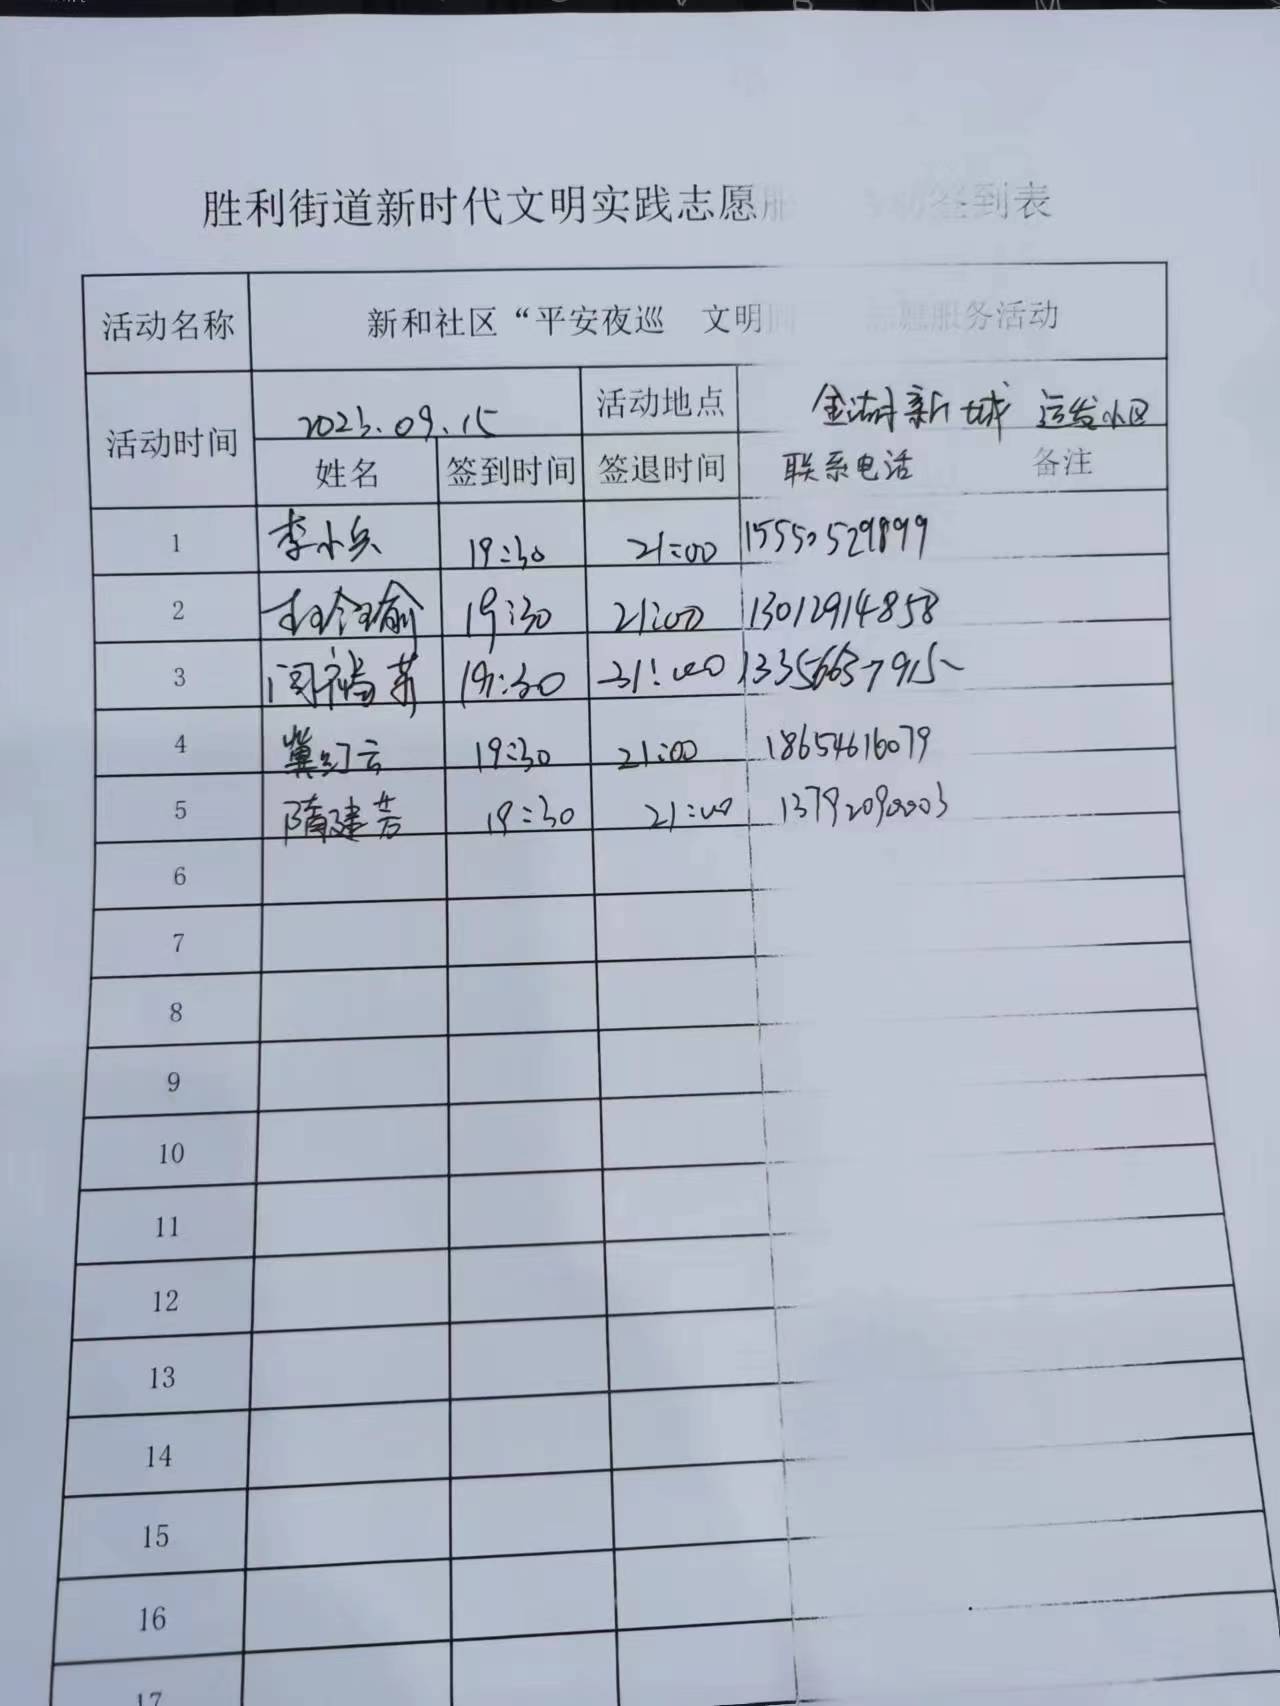 胜利街道新时代文明实践志愿服 签到表
活动名称 新和社区“平安夜巡 文明 志愿服务活动
活动时间 2023.09.15 活动地点 金湖新城 运发小区
姓名 签到时间 签退时间 联系电话 备注
1 李小兵 19:30 21:00 15550529899
2 19:30 21:00 13012914858
3 19:30 21:00 13356637915
4 冀幻云 19:30 21:00 18654616079
5 隋建芳 19:30 21:00 13792090003
6
7
8
9
10
11
12
13
14
15
16
17